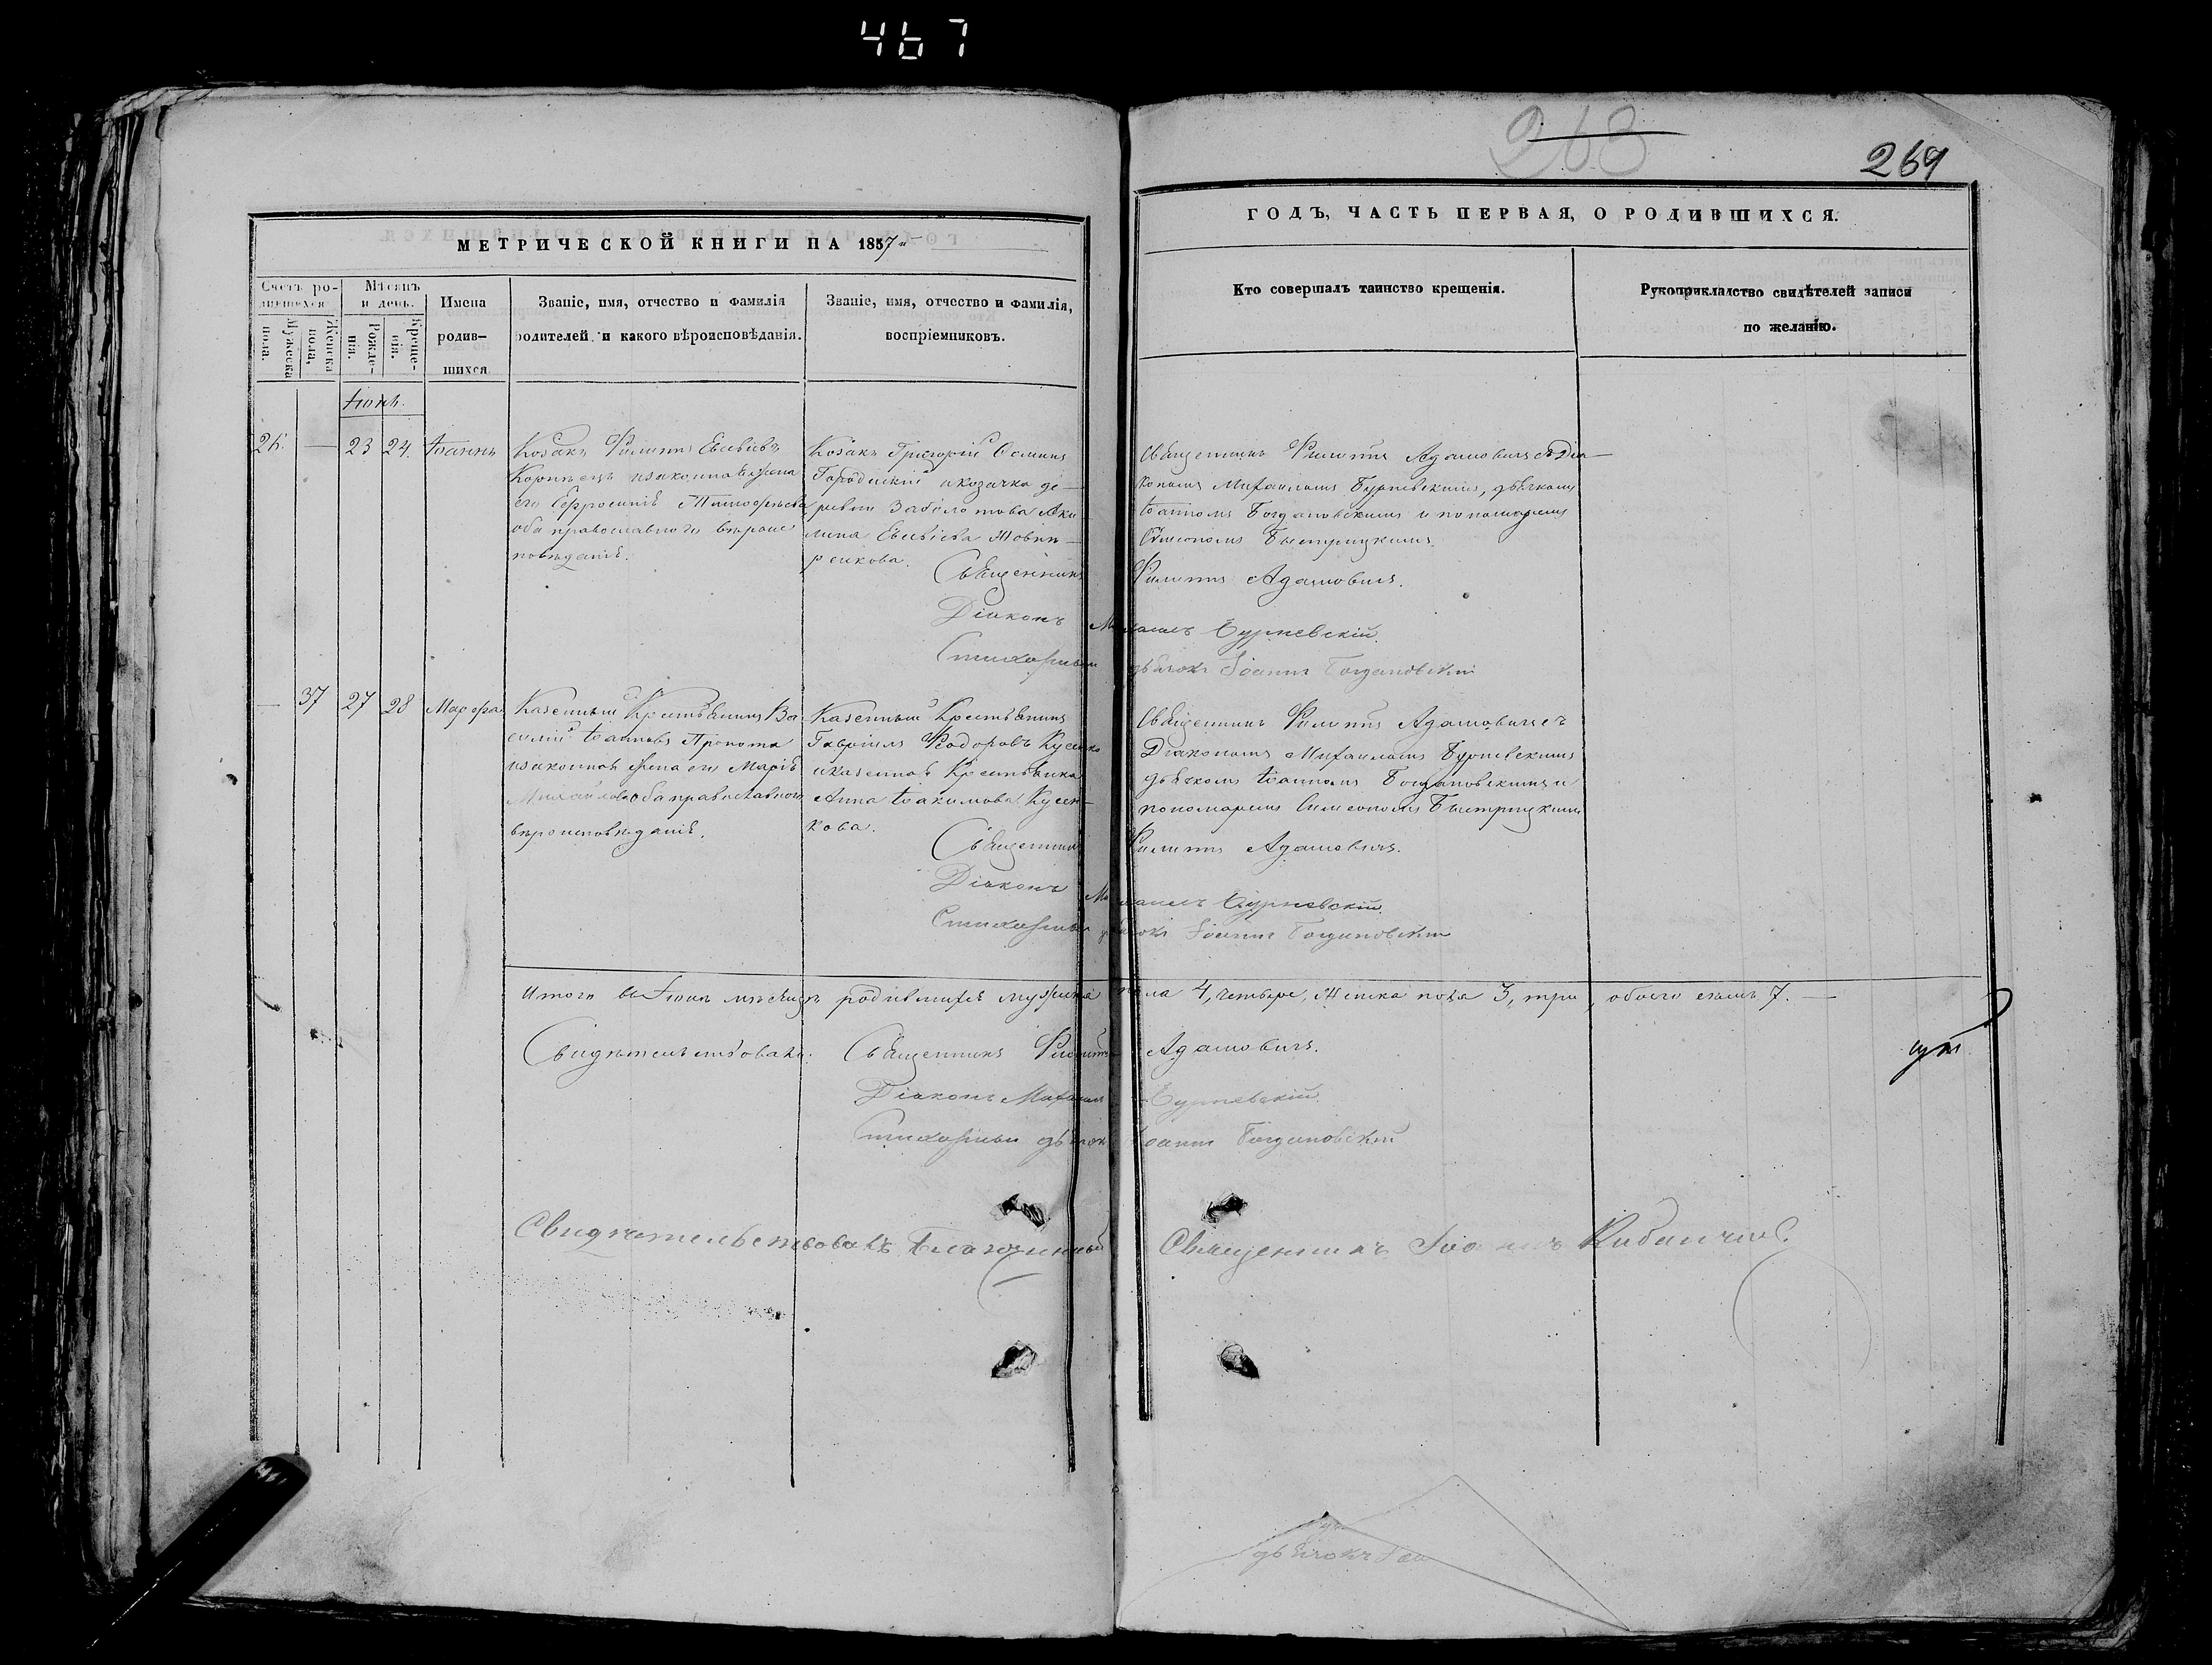 467
263
269
МЕТРИЧЕСКОЙ КНИГИ НА 1857й
ГОДЪ, ЧАСТЬ ПЕРВАЯ, О РОДИВШИХСЯ.
Счетъ ро-
дившихся
Мужеска
пола.
Женска
пола,
Мѣсяцъ
и день.
Рожде-
нія.
Креще-
нія.
Имена
родив-
шихся
Званіе, имя, отчество и фамилія
родителей и какого вѣроисповѣданія.
Званіе, имя, отчество и фамилія,
воспріемниковъ.
Кто совершалъ таинство крещенія.
Рукоприкладство свидѣтелей записи
по желанію.
Іюнь.
26. — 23 24. Іоаннъ
Козакъ Филиппъ Евсѣевъ
законная жена
его Евфросинія Тимофѣева
оба православнаго вѣроис
повѣданія.
Козакъ Григорій Осиповъ
и козачка де-
ревни Заболотова Аки
лина Евсѣева
Священникъ Филиппъ Адамовичъ съ Діа-
кономъ Михаиломъ Бурневскимъ, дьячкомъ
Іоанномъ Богдановскимъ и пономаремъ
Симеономъ Быстрицкимъ.
Священникъ Филиппъ Адамовичъ.
Діаконъ Михаилъ Бурневскій.
Стихарный дьячокъ Іоаннъ Богдановскій
— 37 27 28 Марфа
Казенный Крестьянинъ Ва
силій Іоанновъ
законная жена его Марія
Михайлова оба православнаго
вѣроисповѣданія.
Казенный Крестьянинъ
Гавріилъ Феодоровъ Кусенко
и казенная Крестьянка
Анна Іоакимова Кусен-
кова.
Священникъ Филиппъ Адамовичъ съ
Діакономъ Михаиломъ Бурневскимъ
дьячкомъ Іоанномъ Богдановскимъ и
пономаремъ Симеономъ Быстрицкимъ
Священникъ Филиппъ Адамовичъ.
Діаконъ Михаилъ Бурневскій.
Стихарный дьячокъ Іоаннъ Богдановскій
Итого въ Іюнѣ мѣсяцѣ родившихся мужеска пола 4, четыре, Женска пола 3, три, обоего 7. —
Свидѣтельствовали: Священникъ Филиппъ Адамовичъ.
Діаконъ Михаилъ Бурневскій.
Стихарный дьячокъ Іоаннъ Богдановскій
Свидѣтельствовалъ Благочинный Священникъ Іоаннъ
дьячокъ